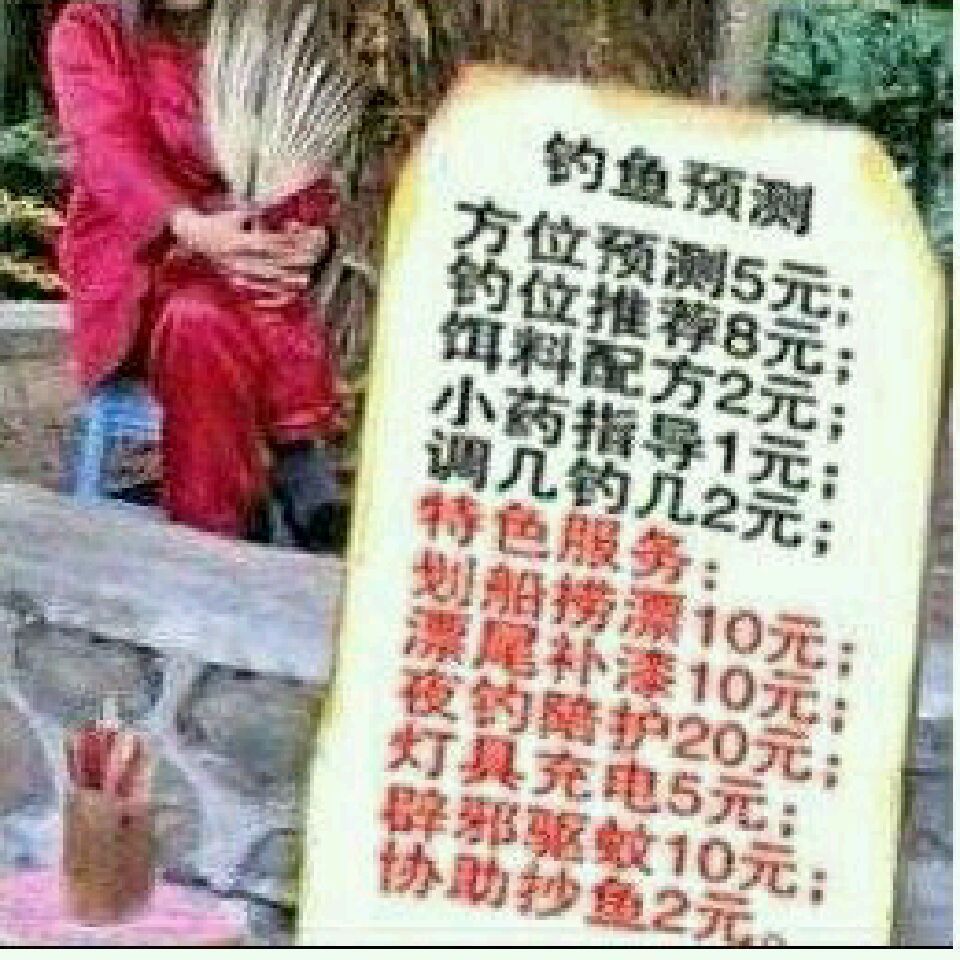 钓鱼预测
方位预测5元;
钓位推荐8元;
饵料配方2元;
小药指导1元;
调几钓几2元;
特色服务:
划船捞漂10元;
漂尾补漆10元;
夜钓陪护20元;
灯具充电5元;
辟邪驱蚊10元;
协助抄鱼2元。